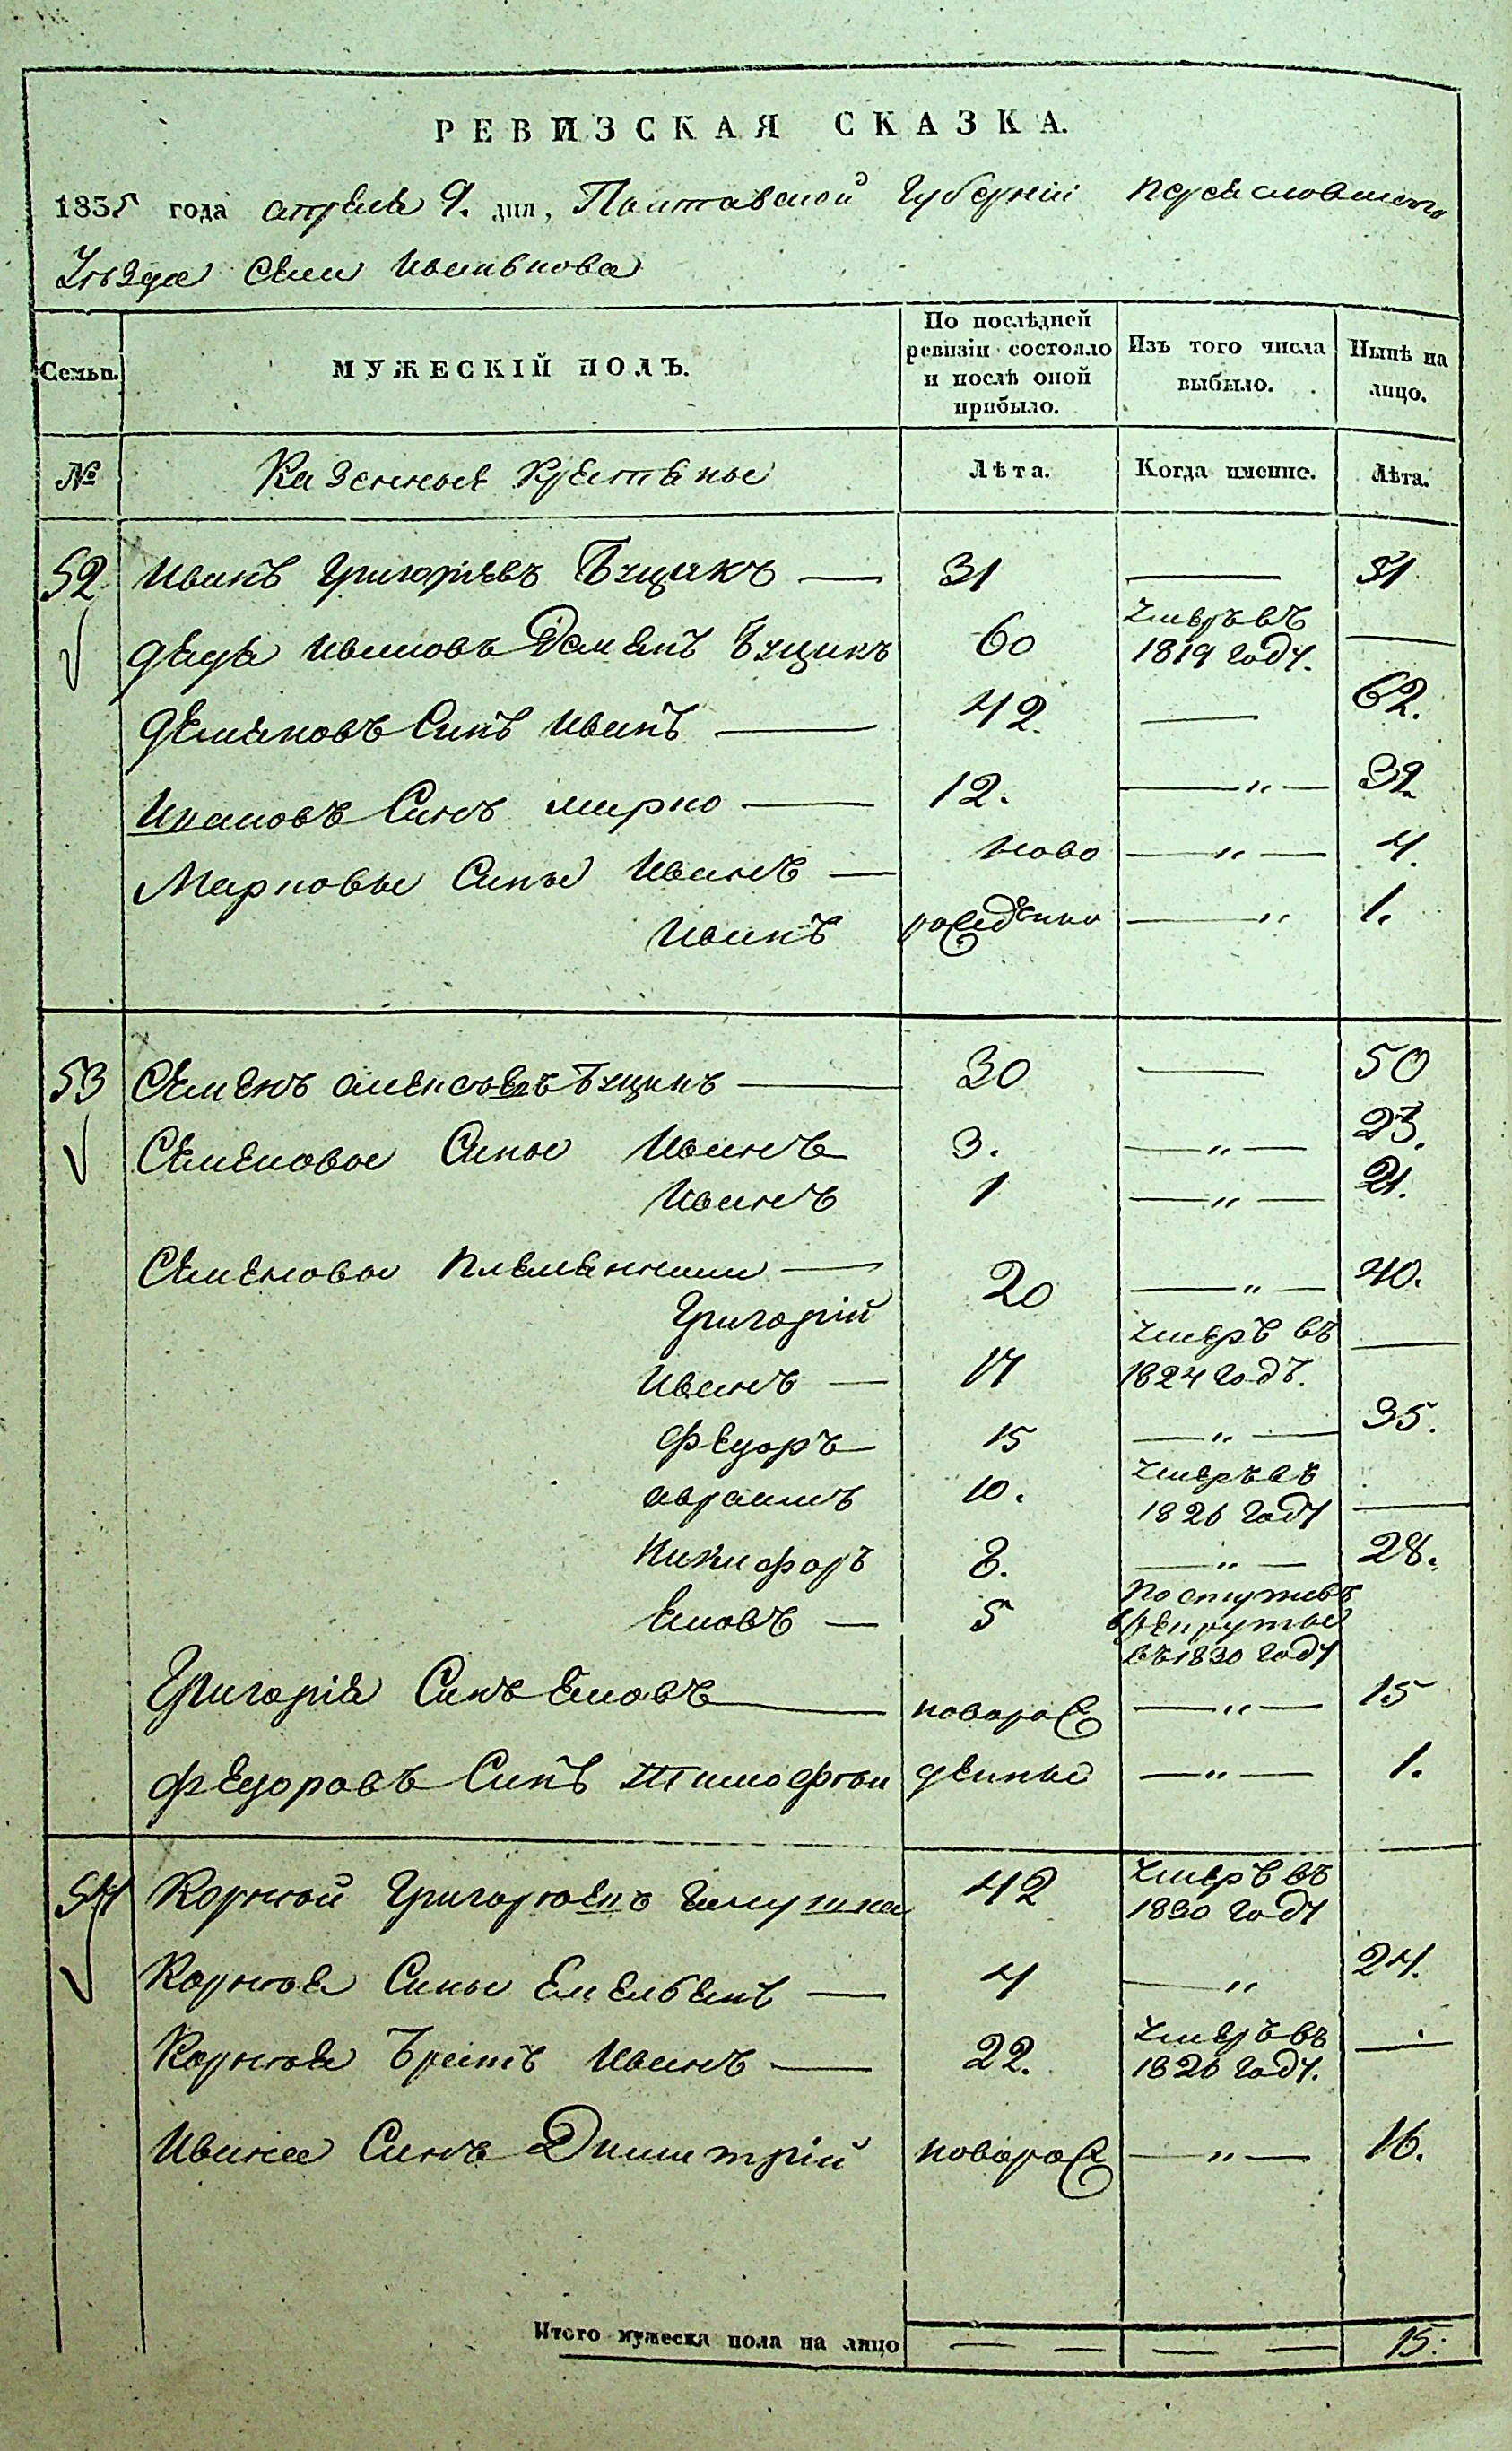 РЕВИЗСКАЯ СКАЗКА.
1835 года апреля 9. дня, Полтавской Губерніи Переясловского
Уезда Села Иванькова
Семьи. МУЖЕСКІЙ ПОЛЪ. По послѣдней ревизіи состояло и послѣ оной прибыло. Изъ того числа выбыло. Нынѣ на лицо.
№ Казенные крестяне Лѣта. Когда именно. Лѣта.
52 Иванъ Григорьевъ Бущикъ — 31 — 51
дядя Ивановъ Демянъ Бущикъ 60 Умеръ въ 1819 году. —
Демяновъ Синъ Иванъ — 42. — 62.
Ивановъ Синъ Марко — 12. — " — 32
Марковы Сины Иванъ — ново — " — 4.
Иванъ рожденно — " 1.
53 Семенъ Алексеевъ Бущикъ — 30 — 50
Семеновы Сины Иванъ 3. — " — 23.
Иванъ 1 — " — 21.
Семеновы племянники — 20 — " — 40.
Григорій
Иванъ — 17 Умеръ въ 1824 годъ. —
Федоръ 15 — " — 35.
Авраамъ 10. Умеръ въ 1826 году —
Никифоръ 8. — " — 28.
Яковъ — 5 Поступивъ в рекруты въ 1830 году
Григорія Синъ Яковъ — поворож — " — 15
Федоровъ Синъ Тимофѣи денные — " — 1.
54 Корней Григорьевъ 42 Умеръ въ 1830 году
Корнея Сины Емельянъ — 4 — " 24.
Корнея Братъ Иванъ — 22. Умеръ въ 1826 году. —
Ивана Синъ Димитрій поворож — " — 16.
Итого мужеска пола на лицо — — — — 15.